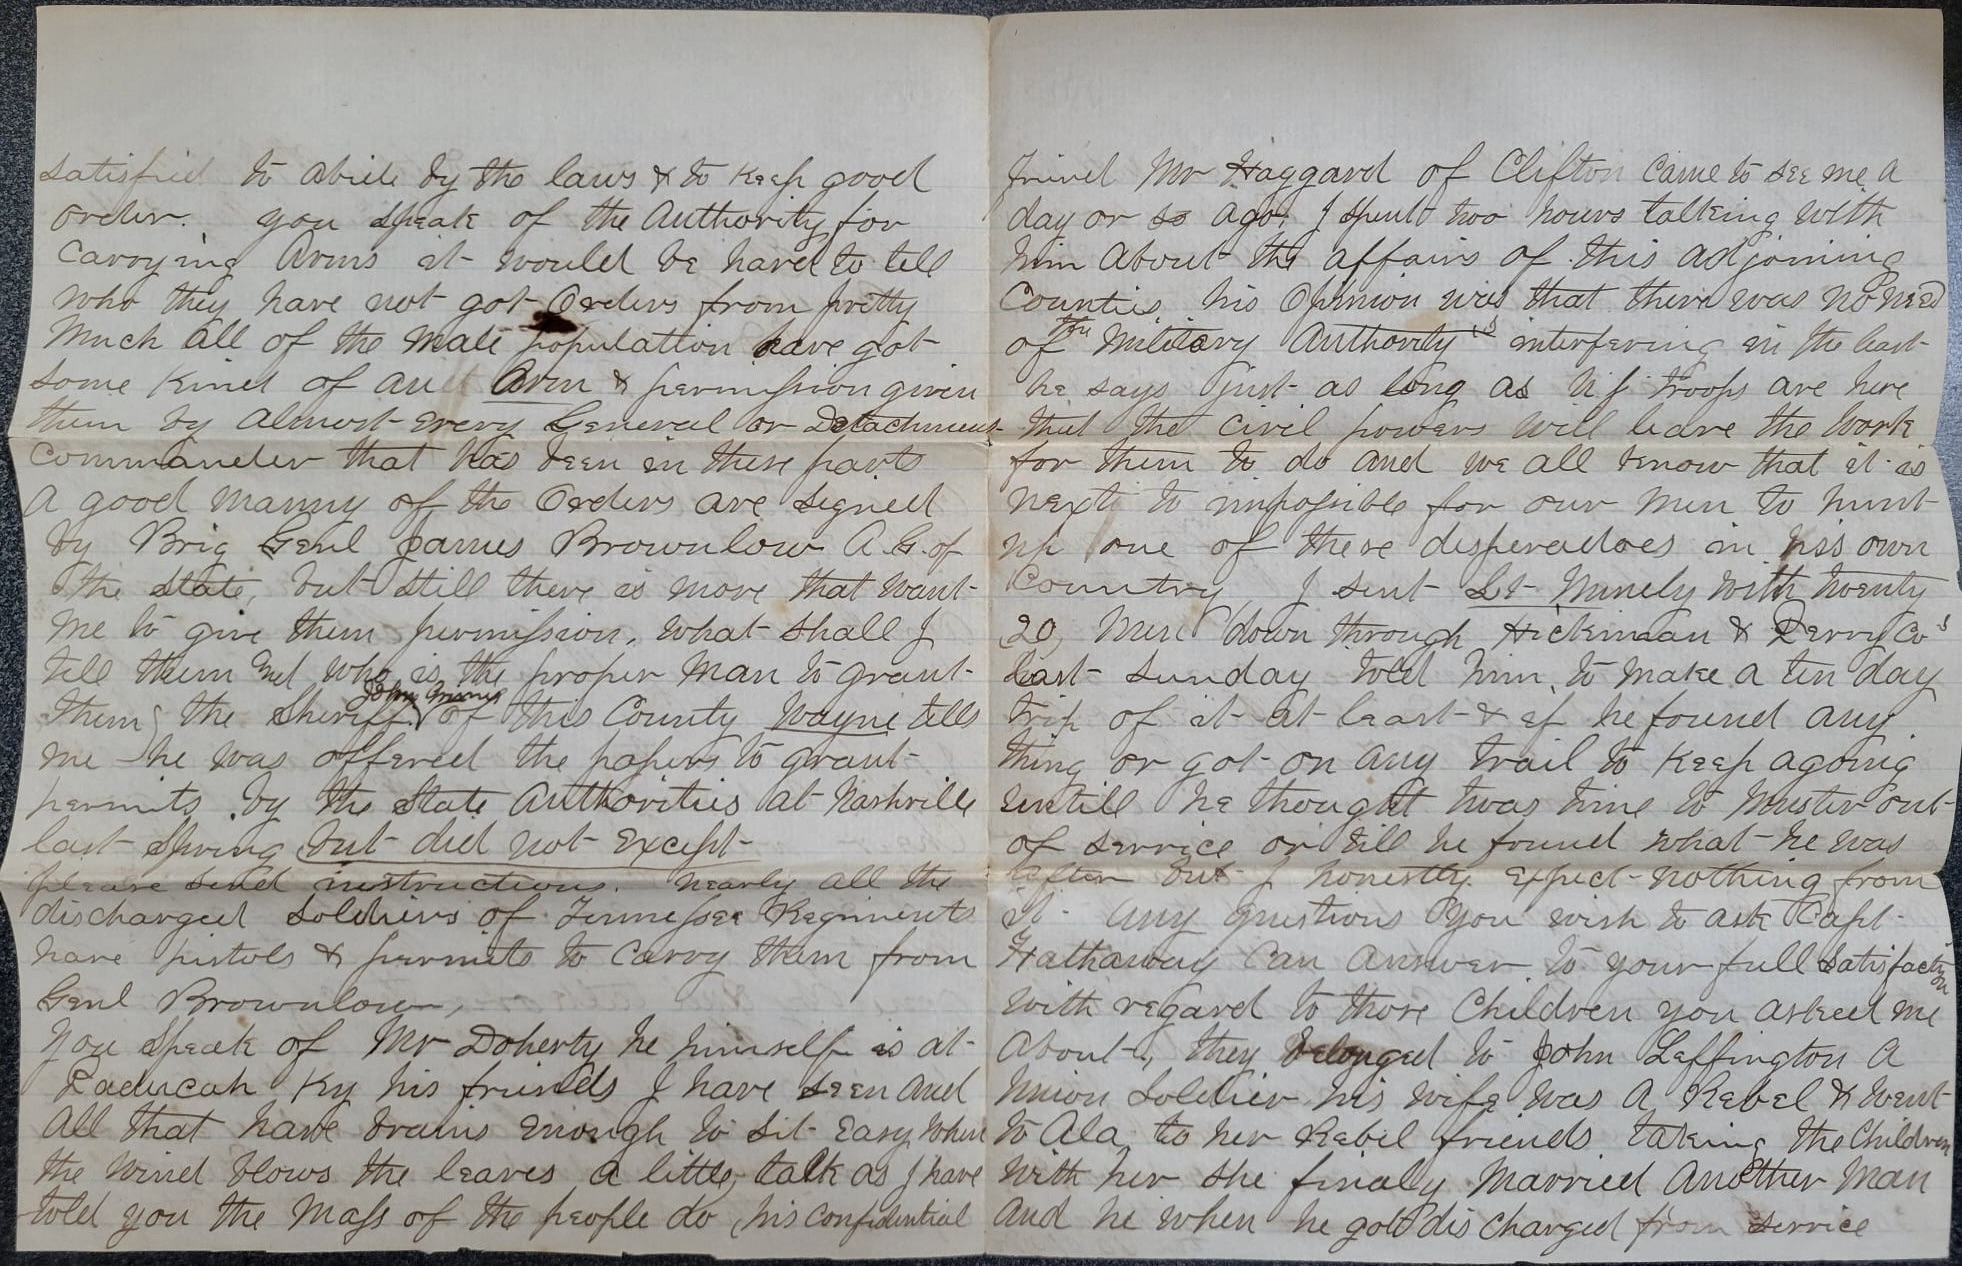 satisfied to abide by the laws & to Keep good
order. you speak of the Authority for
Carrying Arms it would be hard to tell
who they have not got Orders from pretty
Much all of the Male population have got
some Kind of an Arm & permission given
them by Almost Every General or Detachment
Commander that has been in these parts
A good manny of the Orders are signed
by Brig Genl James Brownlow A.G. of
the State, but still there is more that want
Me to give them permission, what shall I
tell them and who is the proper Man to grant
John Grimes
them, the Sheriff of this County Wayne tells
me he was offered the papers to grant
permits by the State Authorities at Nashville
last Spring but did not Except
please send instructions. Nearly all the
discharged Soldiers of Tennessee Regiments
have pistols & permits to Carry them from
Genl Brownlow,
You Speak of Mr Doherty he himself is at
Paducah Ky his friends I have seen and
All that have brains Enough to Sit Easy When
the Wind blows the leaves a little, talk as I have
told you the Mass of the people do, his confidential
friend Mr Haggard of Clifton Came to see me A
day or so ago, I spent two hours talking with
him About the affairs of this adjoining
Counties his Opinion was that there was no need
of the Military Authority's interfering in the least
he says just as long as U S troops are here
that the civil powers will leave the Work
for them to do and we all know that it is
next to impossible for our Men to hunt
up one of these disperadoes in his own
Country I sent Lt Nunely With twenty
20, Men down through Hickman & Perry Co's
last Sunday told him to make a ten day
trip of it at least & if he found any
thing or got on any trail to Keep agoing
untill he thought twas time to Muster out
of service or till he found what he was
after but I honestly Expect nothing from
it. Any questions You wish to ask Capt
Hathaway Can Answer to your full Satisfaction
With regard to those Children you asked me
About, they belonged to John Leffington A
Union Soldier his wife was A Rebel & went
to Ala, to her Rebel friends taking the Children
With her she finaly Married Another Man
And he when he got discharged from Service